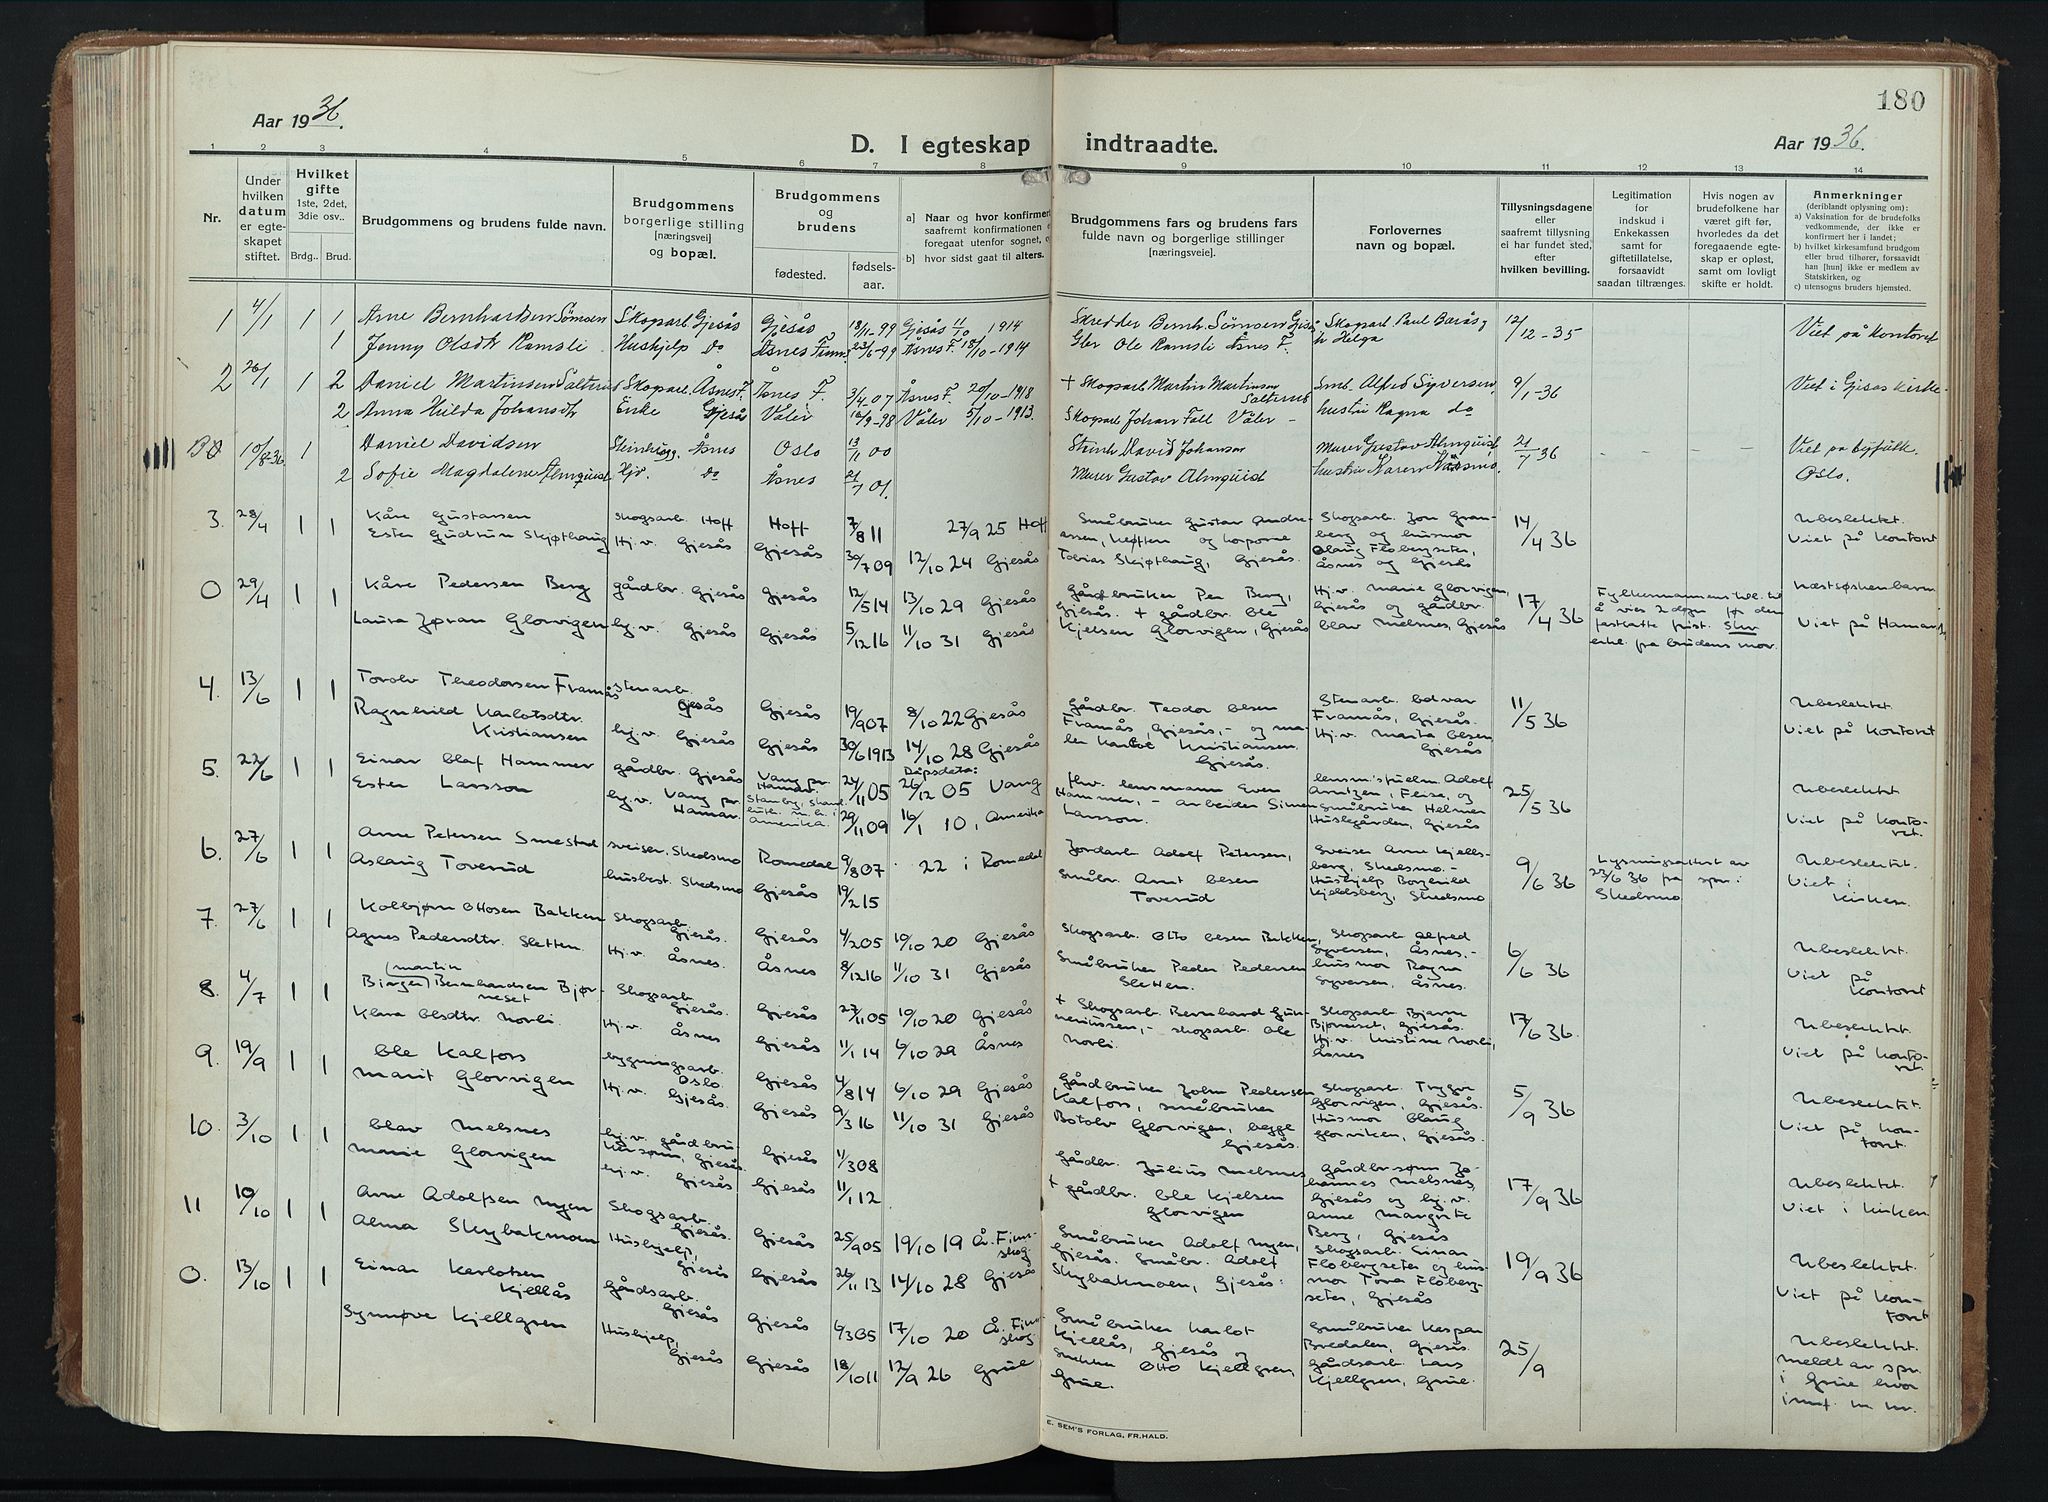 180
Aar 1936.
D. I egteskap indtraadte.
Aar 1936.
1 2 3 4 5 6 7 8 9 10 11 12 13 14
Nr.
Under hvilken datum er egteskapet stiftet.
Hvilket gifte 1ste, 2det, 3die osv..
Brdg.. Brud.
Brudgommens og brudens fulde navn.
Brudgommens borgerlige stilling [næringsvei] og bopæl.
Brudgommens og brudens
fødested.
fødselsaar.
a) Naar og hvor konfirmert saafremt konfirmationen
foregaat utenfor sognet,
b) hvor sidst gaat til alters.
Brudgommens fars og brudens fars fulde navn og borgerlige stillinger [næringsveie].
Forlovernes navn og bopæl.
Tillysningsdagene eller saafremt tillysning ei har fundet sted, efter hvilken bevilling.
Legitimation for indskud i Enkekassen samt for giftetillatelse, forsaavidt saadan tiltrænges.
Hvis nogen av brudefolkene har været gift før, hvorledes da det foregaaende egteskap er opløst, samt om lovligt skifte er holdt.
Anmerkninger
(deriblandt oplysning om):
a) Vaksination for de brudefolks vedkommende, der ikke er konfirmert her i landet;
b) hvilket kirkesamfund brudgom eller brud tilhører, forsaavidt han [hun] ikke er medlem av Statskirken, og
c) utensogns bruders hjemsted.
1 4/1 1 1 Arne Bernhardsen Sömoen Skogarb. Gjesås Gjesås 18/11-99 Gjesås 11/10 1914 Skredder Bernh. Sömoen Gjesås Skogarb Paul Barås 12/12-35 Viet på kontoret
1 Jenny Olsdtr Ramsli Huskjelp Do Åsnes Finnsk. 23/6-99 Åsnes F. 18/10-1914 Gbr Ole Ramsli Åsnes F. Helga
2 26/1 1 2 Daniel Martinsen Salterud Skogarb. Åsnes F. Åsnes F. 3/4-07 Åsnes F. 20/10-1918 + Skogarb Martin Martinsen Salterud Smb. Alfred Syversen 9/1-36 Viet i Gjesås kirke
2 Anna Hilda Johansdtr Enke Gjesås Våler 18/9-98 Våler 5/10-1913. Skogarb Johan Fall Våler - hustru Ragna do
10/8-36 1 Daniel Davidsen Steinhugg. Åsnes Oslo 13/1 00 Steinh David Johanson Murer Gustav Almquist 21/7 36 - - - Viet på byfutk.
2 Sofie Magdalene Almquist Hjv. Do Åsnes 21/7 01. Murer Gustav Almquist hustru Karen Oslo.
3. 28/4 1 1 Kåre Gustavsen Skogsarb. Hoff Hoff 7/8 11 27/9 25 Hoff Småbruker Gustav Andre- Skogsarb. Jon Gran- 14/4 36 Ubeslektet.
Ester Gudrun Skjøthaug Hj.v. Gjesås Gjesås 30/7 09 12/10 24 Gjesås assen, og korporal berg og husmor Viet på kontoret
Tobias Skjøthaug, Gjesås. Olaug Flobergseter,
Åsnes og Gjesås
0 29/4 1 1 Kåre Pedersen Berg gårdbr. Gjesås Gjesås 12/5 14 13/10 29 Gjesås Gårdbruker Per Berg, Hj.v. Marie Glorvigen, 17/4 36 Fylkesmannens till. til Næstsøskenbarn
Laura Jøran Glorvigen hj.v. Gjesås Gjesås 5/12 16 11/10 31 Gjesås Gjesås. + gårdbr. Ole Gjesås og gårdbr. å vies 2 døgn før den
Kjelsen Glorvigen, Gjesås Olav Melsnes, Gjesås fastsatte frist. Skr. Viet på Hamar
erkl. fra brudens mor.
4. 13/6 1 1 Torolv Theodorsen Framås Stenarb. Gjesås Gjesås 19/9 07 8/10 22 Gjesås Gårdbr. Teodor Olsen Stenarb. Odvar 11/5 36 Ubeslektet.
Ragnhild Karlotsdtr. hj.v. Gjesås Gjesås 30/6 1913 14/10 28 Gjesås Framås, Gjesås, - og ma- Framås, Gjesås. Viet på kontoret
Kristiansen ler Karlot Kristiansen Hj.v. Marta Olsen
Gjesås. Gjesås
5. 22/6 1 1 Einar Olaf Hammer gårdbr. Gjesås Vang pr. Hamar. 24/11 05 Dåpsdata: 26/12 05 Vang Fhv. lensmann Even lensm.fullm. Adolf 25/5 36 Ubeslektet
Ester Larsson hj.v. Vang pr. Hamar. Amerika. 29/11 09 16/1 10, Amerika Hammer, - arbeider Simen Arntzen, Flisa, og
Larsson. Småbruker Helmer Viet på konto-
Huslegården, Gjesås ret.
6. 27/6 1 1 Arne Petersen Smestad sveiser, Skedsmo Romedal 9/8 07 22 i Romedal Jordarb. Adolf Petersen, Sveiser Arne Kjells- 9/6 36 Lysningsattest av Ubeslektet
Aslaug Toverud husbest. Skedsmo Gjesås 19/2 15 Småbr. Arnt Olsen berg, Skedsmo. - 23/6 36 fra spr. i Viet i
Toverud Hushjelp Borghild Skedsmo kirken.
Kjeldsberg, Skedsmo
7. 27/6 1 1 Kolbjørn Ottosen Bakken Skogsarb. Gjesås. Gjesås 4/2 05 19/10 20 Gjesås Skogsarb. Otto Olsen Bakken, Skogsarb. Alfred 6/6 36 Ubeslektet.
Agnes Pedersdtr. Sletten. Hj.v. Åsnes. Åsnes 8/12 16 11/10 31 Gjesås Småbruker Peder Pedersen Syversen, Åsnes, - Viet på
Sletten. husmor Ragna kontoret
Syversen, Åsnes.
8. 4/7 1 1 Birger (Martin) Bernhardsen Bjør- Skogsarb. Gjesås. Gjesås 27/11 05 19/10 20 Gjesås + Skogsarb. Bernhard Gun- Skogsarb. Bjarne 17/6 36. Ubeslektet.
neset neriussen, - skogsarb. Ole Bjørneset, Gjesås.
Klara Olsdtr. Norli. Hj.v. Åsnes Gjesås 11/1 14 6/10 29 Åsnes Norli. Hj.v. Kristine Norli, Viet på konto-
Åsnes ret.
9. 19/9 1 1 Ole Kalfoss bygningsarb. Oslo Gjesås 4/8 14 6/10 29 Gjesås Gårdbruker John Pedersen Skogsarb. Trygve 5/9 36 Ubeslektet.
Marit Glorvigen Hj.v. Gjesås. Gjesås 9/3 16 11/10 31 Gjesås Kalfoss, småbruker Glorvigen, Gjesås.
Botolv Glorvigen, begge Husmor Olaug Viet på kon-
Gjesås. Glorviken, Gjesås. toret.
10. 3/10 1 1 Olav Melsnes hj.v. gårdbru- Gjesås 11/3 08 Gårdbr. Julius Melsnes Gårdbr.sønn Jo- 17/9 36 Ubeslektet.
Marie Glorvigen kersønn, Gjesås. + gårdbr. Ole Kjelsen hannes Melsnes,
hj.v. Gjesås Gjesås 11/1 12 Glorvigen Gjesås og hj.v. Viet i kirken
Anne Margrete
Berg, Gjesås
11 10/10 1 1 Arne Adolfsen Myren Skogsarb. Gjesås. Gjesås 25/9 05 19/10 19 Å. Finnskog. Småbruker Adolf Myren, Skogsarb. Einar 19/9 36 Ubeslektet.
Alma Skybakmoen Hushjelp, Gjesås Gjesås 26/11 13 14/10 28 Gjesås Gjesås. Småbr. Adolf Flobergseter og hus- Viet på kon-
Skybakmoen, Gjesås. mor Tora Floberg- toret
seter, Gjesås
0. 13/10 1 1 Einar Karlotsen Kjellås Gårdsarb. Gjesås Gjesås 6/3 05 17/10 20 Å. Finnskog. Småbruker Karlot Småbruker Kaspar 25/9 Ubeslektet.
Synnøve Kjellgren Hushjelp, Gjesås Gjesås 18/10 11 12/9 26 Grue Kjellås, Gjesås og Bredalen, Gjesås. meldt av spr.
snekker Otto Kjellgren, gårdsarb. Lars i Grue hvor
Grue. Kjellgren, Grue. innf. m. nr.
E. SEM'S FORLAG, FR.HALD.